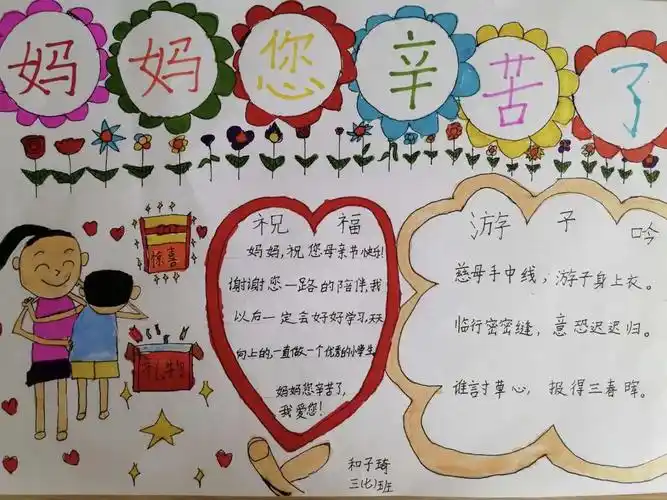 妈妈您辛苦了
惊喜
礼物
祝福
妈妈,祝您母亲节快乐!
谢谢您一路的陪伴,我
以后一定会好好学习,天天
向上的,一直做一个优秀的小学生。
妈妈您辛苦了,
我爱您!
游子吟
慈母手中线,游子身上衣。
临行密密缝,意恐迟迟归。
谁言寸草心,报得三春晖。
和子琦
三(七)班